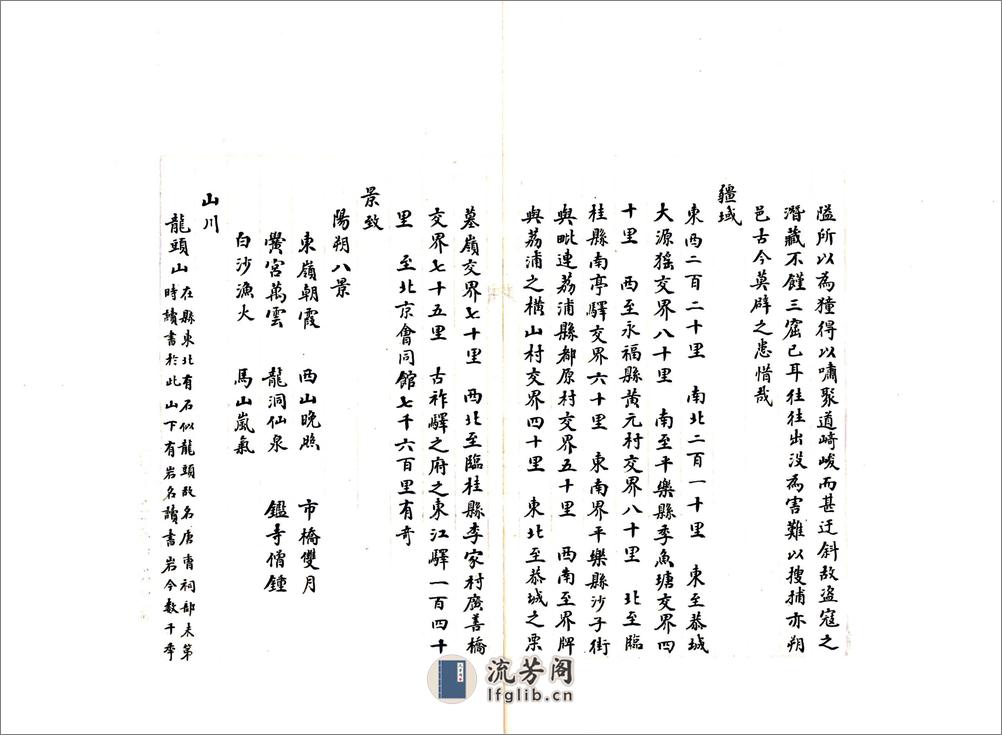 隘所以為獞得以嘯聚道崎峻而甚迂斜故盜寇之
潛藏不饉三窟已耳往往出沒為害難以搜捕亦朔
邑古今莫辟之患惜哉
疆域
東西二百二十里 南北二百一十里 東至恭城
大源猺交界八十里 南至平樂縣季魚塘交界四
十里 西至永福縣黃元村交界八十里 北至臨
桂縣南亭驛交界六十里 東南界平樂縣沙子街
與毗連荔浦縣都原村交界五十里 西南至界牌
與荔浦之橫山村交界四十里 東北至恭城之栗
墓嶺交界七十里 西北至臨桂縣李家村廣善橋
交界七十五里 古祚驛之府之東江驛一百四十
里 至北京會同館七千六百里有奇
景致
陽朔八景
東嶺朝霞 西山晚照 市橋雙月
黌宮萬雲 龍洞仙泉 鑑寺僧鍾
白沙漁火 馬山嵐氣
山川
龍頭山 在縣東北有石似龍頭故名唐曹祠部未第
時讀書於此山下有岩名讀書岩今數千季
流芳阁
lfglib.cn